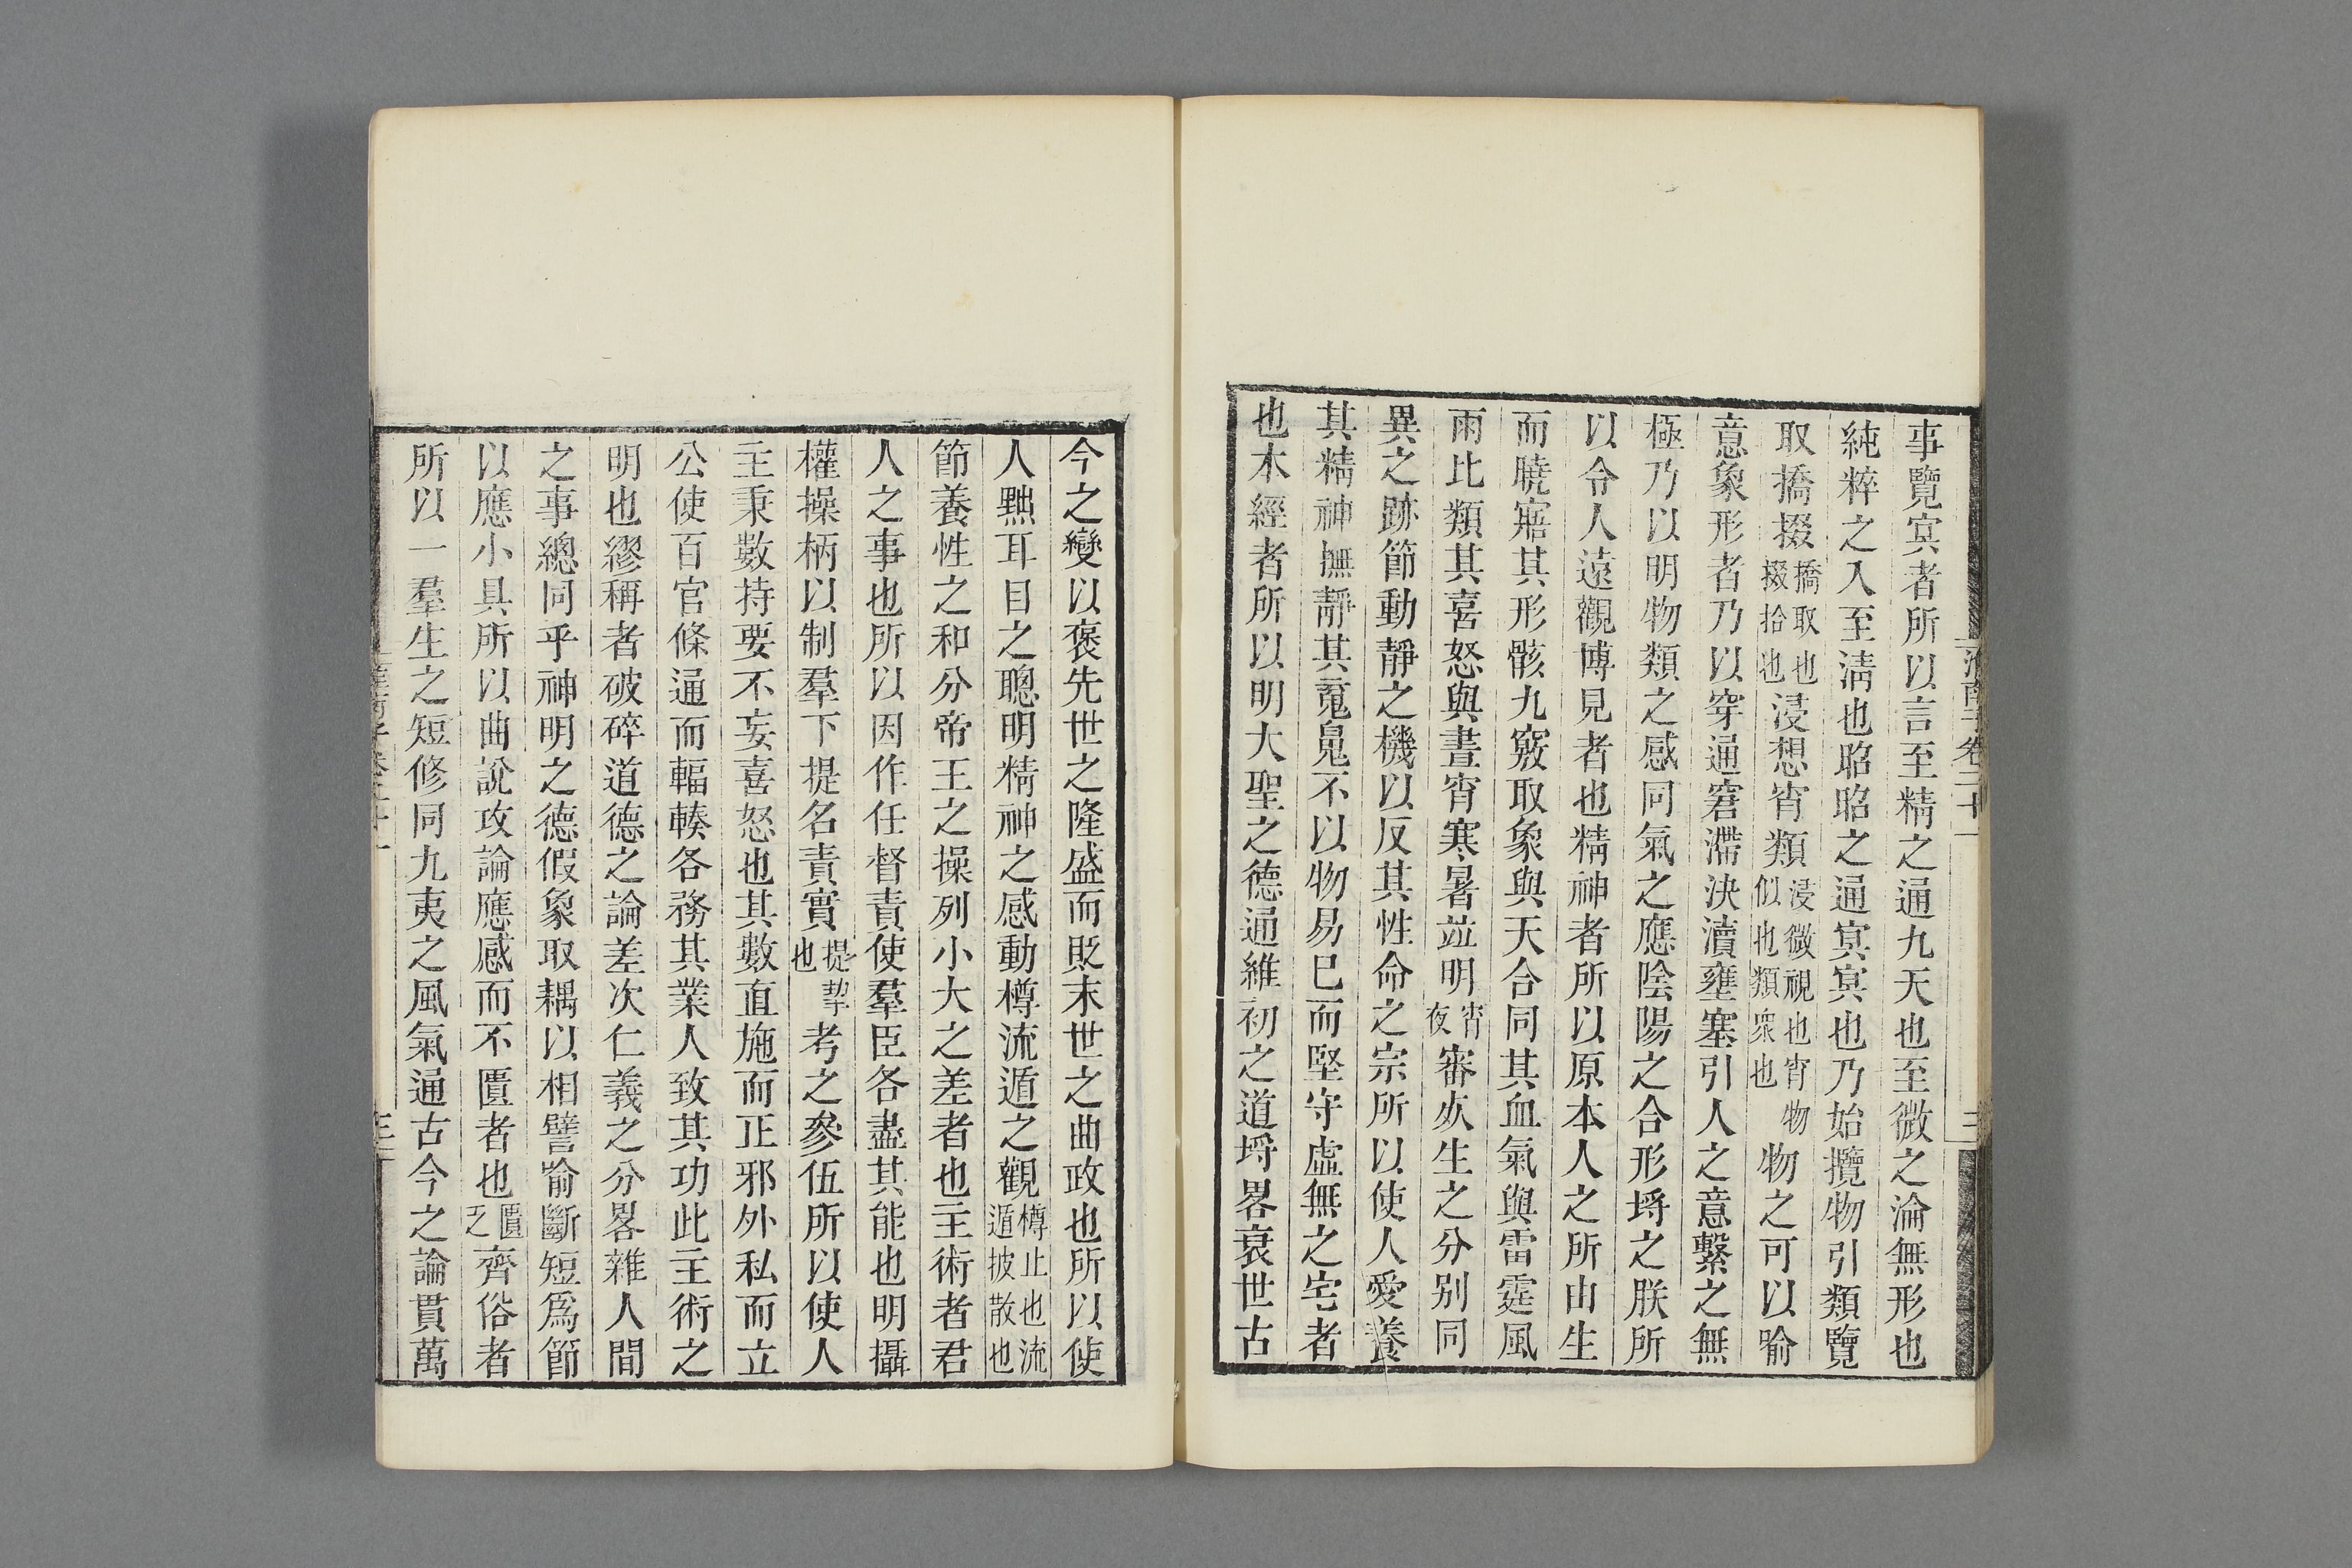 淮南子卷二十一 三
事覽㝠者所以言至精之通九天也至微之淪無形也
純粹之入至淸也昭昭之通㝠㝠也乃始攬物引類覽
取撟掇撟取也掇拾也浸想宵類浸微視也宵物似也類衆也物之可以喻
意象形者乃以穿通窘滯決瀆壅塞引人之意繫之無
極乃以明物類之感同氣之應陰陽之合形埒之朕所
以令人遠觀博見者也精神者所以原本人之所由生
而曉寤其形骸九竅取象與天合同其血氣與雷霆風
雨比類其喜怒與晝宵寒暑竝明宵夜審㸦生之分別同
異之跡節動靜之機以反其性命之宗所以使人愛養
其精神撫靜其䰟䰟不以物易巳而堅守虛無之宅者
也本經者所以明大聖之德通維初之道埒畧衰世古
今之變以褒先世之隆盛而貶末世之曲政也所以使
人黜耳目之聰明精神之感動樽流遁之觀樽止也流遁披散也
節養性之和分帝王之操列小大之差者也主術者君
人之事也所以因作任督責使羣臣各盡其能也明攝
權操柄以制羣下提名責實提挈也考之參伍所以使人
主秉數持要不妄喜怒也其數直施而正邪外私而立
公使百官條通而輻輳各務其業人致其功此主術之
明也繆稱者破碎道德之論差次仁義之分畧雜人間
之事總同乎神明之德假象取耦以相譬喻斷短爲節
以應小具所以曲說攻論應感而不匱者也匱乏齊俗者
所以一羣生之短修同九夷之風氣通古今之論貫萬